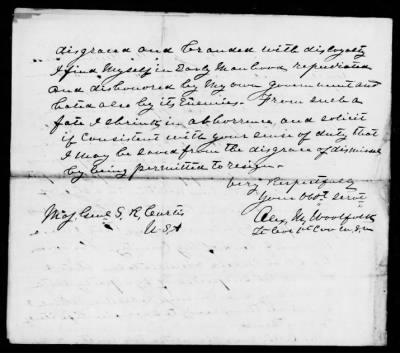 disgraced and branded with disloyalty
I find Myself in Early Manhood repudiated
and dishonored by My own government and
hated also by its Enemies. From such a
fate I shrink in abhorrence, and solicit
if Consistent with your sense of duty that
I may be saved from the disgrace of dismissal
by being permitted to resign.
Very Respectfully
Your Obdt Servt
Maj Genl S. R. Curtis
Alex. M. Woolfolk
U.S.A
Lt Col 1st Cav